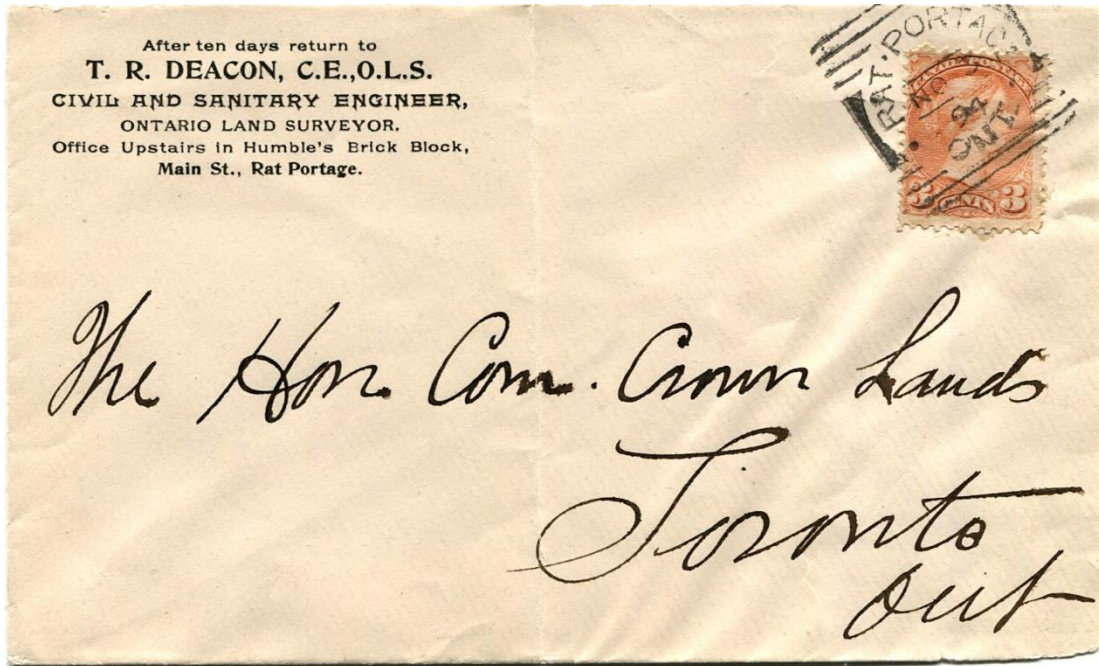 After ten days return to
T. R. DEACON, C.E.,O.L.S.
CIVIL AND SANITARY ENGINEER,
ONTARIO LAND SURVEYOR.
Office Upstairs in Humble's Brick Block,
Main St., Rat Portage.
RAT·PORTAG
NO
94
ONT.
3 CENTS 3
The Hon. Com. Crown Lands
Toronto
Ont